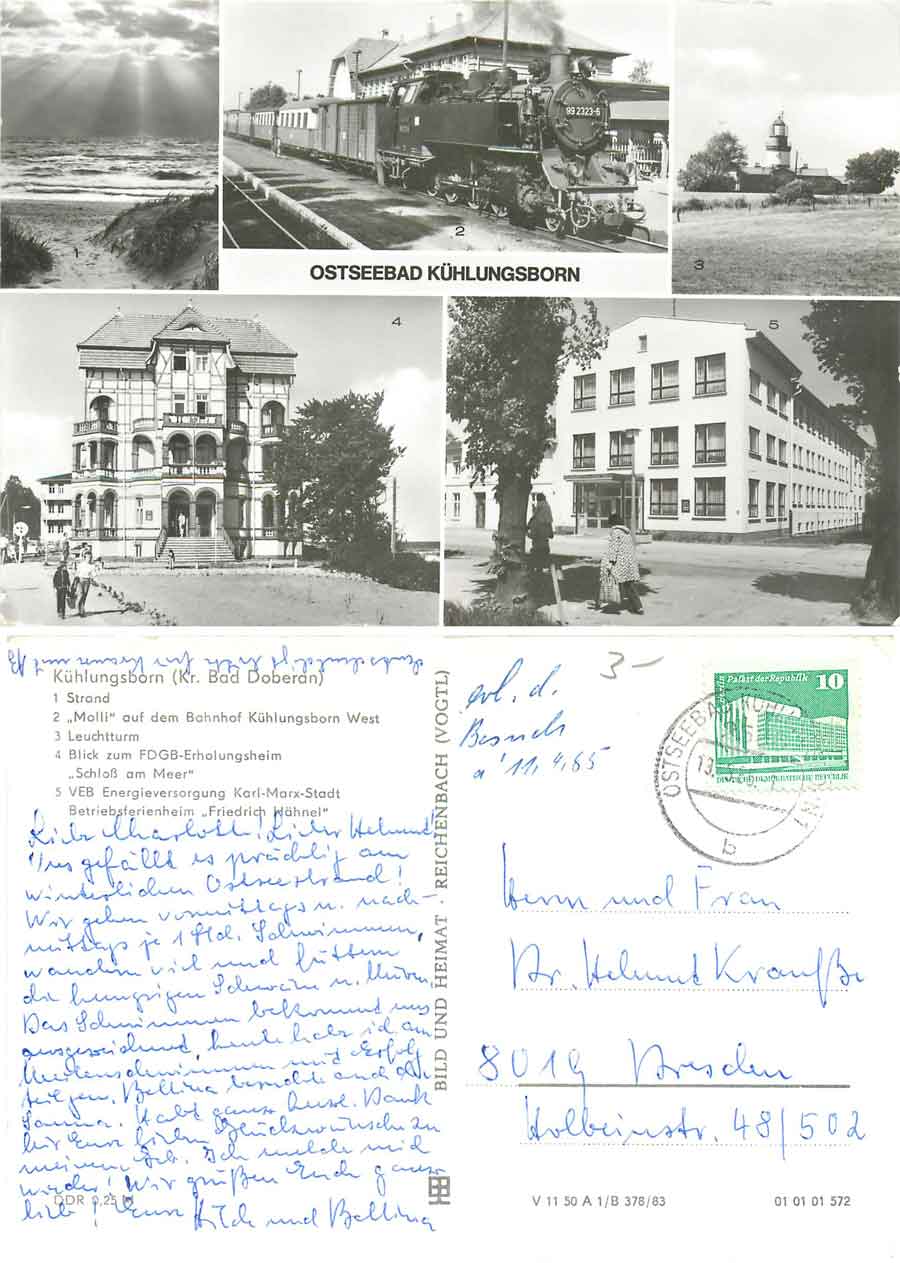 99 2323-6
1
2
3
OSTSEEBAD KÜHLUNGSBORN
4
5
Kühlungsborn (Kr. Bad Doberan)
1 Strand
2 „Molli" auf dem Bahnhof Kühlungsborn West
3 Leuchtturm
4 Blick zum FDGB-Erholungsheim
„Schloß am Meer"
5 VEB Energieversorgung Karl-Marx-Stadt
Betriebsferienheim „Friedrich Hähnel"
Liebe Charlotte! Lieber Helmut!
Uns gefällt es prächtig am
winterlichen Ostseestrand!
Wir gehen vormittags u. nach-
mittags je 1 Std. Schwimmen,
wandern viel und füttern
die hungrigen Schwäne u. Möwen.
Das Schwimmen bekommt uns
ausgezeichnet, heute habe ich am
Meilenschwimmen mit Erfolg
teilgen. Bettina besuchte auch die
Sauna. Habt ganz herzl. Dank
für Eure lieben Glückwünsche zu
meinem Geb. Ich melde mich
wieder! Wir grüßen Euch ganz
lieb! Eure Hilde und Bettina
DDR 0,25 M
BILD UND HEIMAT REICHENBACH (VOGTL)
3-
erl. d.
Besuch
a' 11.4.85
Palast der Republik
10
DEUTSCHE DEMOKRATISCHE REPUBLIK
OSTSEEBAD KÜHLUNGSBORN
b
Herrn und Frau
Dr. Helmut Krauße
8019 Dresden
Holbeinstr. 48/502
V 11 50 A 1/B 378/83
01 01 01 572